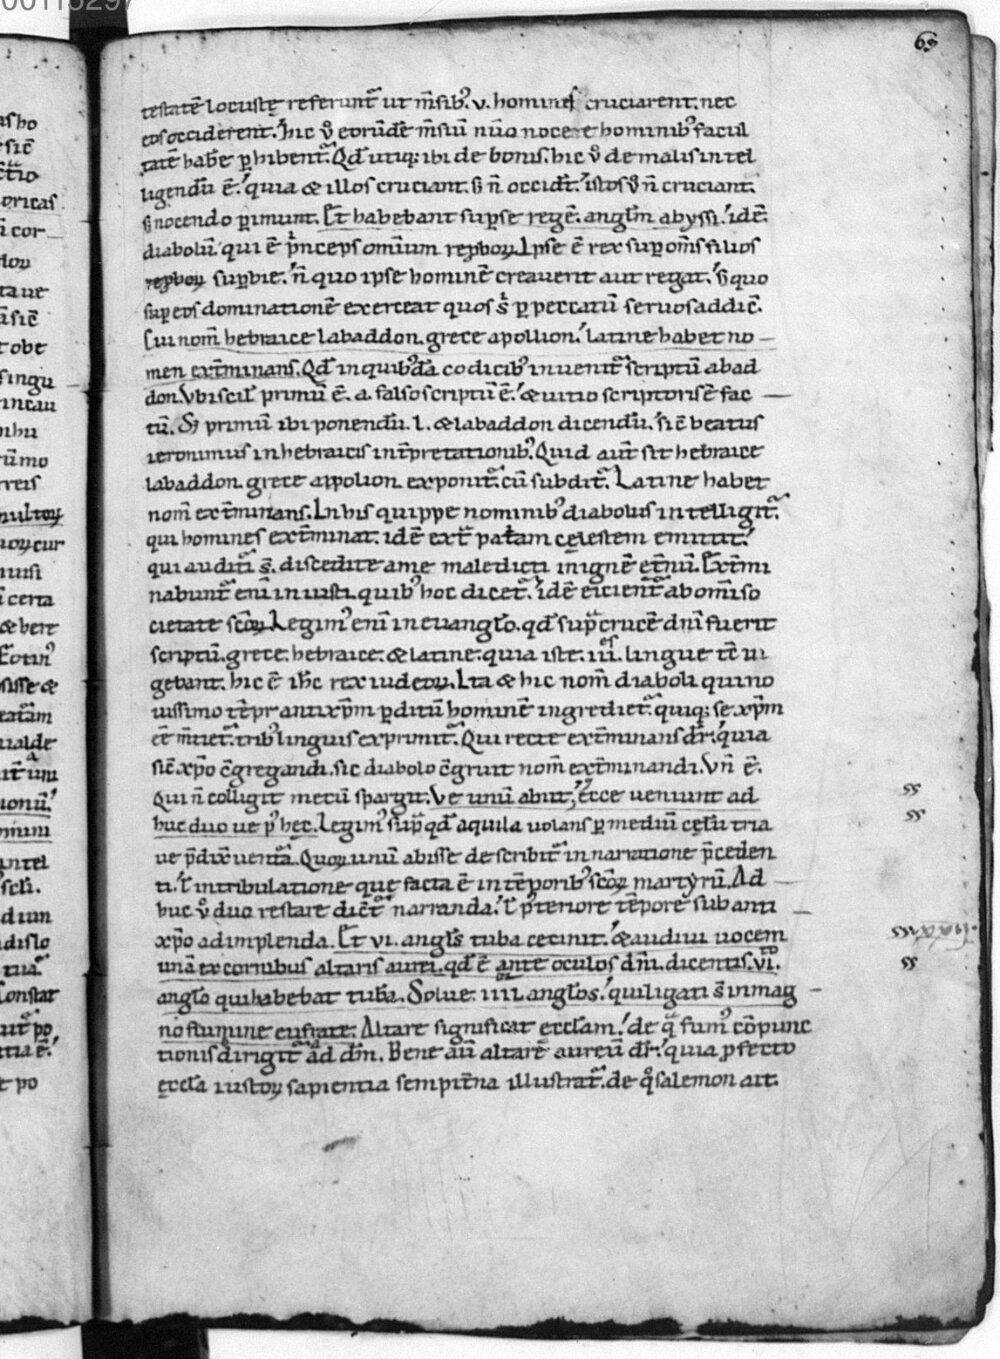 63
testatē locustę referunt᷑ ut m̄sibꝰ .v. homines cruciarent. nec
eos occiderent. Hic ṽ eorūdē m̄siū nūo nocere hominibꝰ facul
tatē habē ꝑhibent᷑. Qđ utiq; ibi de bonis. hic ṽ de malis intel
ligendū ē. quia & illos cruciant. s̄ n̄ occidt̄. istos ṽ n̄ cruciant.
s̄ nocendo ꝑimunt. Et habebant sup se regē. anglm̄ abyssi. idē
diabolū. qui ē p̄nceps omīum reꝓboꝝ. Ipse ē rex suꝑ om̄s filios
reꝓboꝝ suꝑbie. n̄ quo ipse hominē creauerit aut regat. s̄ quo
suꝑ eos dominationē exerceat quos s̄ ꝑ peccatū seruos addic̄.
Cui nom̄ hebraice labaddon. grece apollion. latine habet no
men ext̄minans. Qđ in quibꝰdā codicibꝰ inuenit᷑ scriptū abad
don. Vbi scił primū ē .a. falso scriptū ē. & uitio scriptoris ē fac
tū. S; primū ibi ponendū .l. & labaddon dicendū. sic̄ beatus
ieronimus in hebraicis int̄pretationibꝰ. Quid aut̄ sit hebraice
labaddon. grece appolion exponit᷑. cū subdit᷑. Latine habet
nom̄ ext̄minans. In his quippe nominibꝰ diabolus intelligit᷑.
qui homines ext̄minat. idē ext᷑ patām cęlestem emittit.
qui audit̄i s̄. discedite a me maledicti in ignē et̄nū. Ext̄mi
nabunt᷑ enī iniusti. quibꝰ hoc dicet᷑. idē eicient᷑ ab om̄i so
cietate scōꝝ. Legimꝰ enī in euanglo. qđ sup᷑ crucē dn̄i fuerit
scriptū. grece. hebraice. & latine. quia iste .iii. lingue tē ui
gebant. hic ē ih̄c rex iudeoꝝ. Ita & hic nom̄ diaboli qui no
uissimo tēpr̄ antixp̄m ꝑditū hominē ingrediet᷑. quiq; se xp̄m
eē m̄tiet᷑. tribꝰ linguis exprimit᷑. Qui recte ext̄minans dr̄. quia
sic̄ xp̄o c̄gregandi. sic diabolo c̄gruit nom̄ ext̄minandi. Vn̄ ē.
Qui n̄ colligit mecū spargit. Ve unū abiit, ecce ueniunt ad
huc duo ue pꝰ hęc. Legimꝰ sup᷑ qđ aquila uolans ꝑ mediū cęlū tria
ue p̄dix̄ uent̄a. Quoꝝ unū abisse describit᷑ in narratione p̄ceden
ti. ł in tribulatione que facta ē in tēporibꝰ scōꝝ martyrū. Ad
huc ṽ duo restare dic̄t᷑ narranda. ł pꝰteriore tēpore sub anti
xp̄o adimplenda. Et vi. angls̄ tuba cecinit. & audiui uocem
unā ex cornibus altaris aurei. qđ ē ante oculos dn̄i. dicentis. vi.to
anglo qui habebat tubā. Solue .iiii. anglos. qui ligati s̄ in mag
no flumine eufrate. Altare significat eccłam. de q᷑ fumꝰ cōpunc
tionis dirigit᷑ ad dm̄. Bene aū altarē aureū dr̄. quia ꝓfecto
eccła iustoꝝ sapientia sempit̄na illustrat᷑. de qͦ salemon ait.